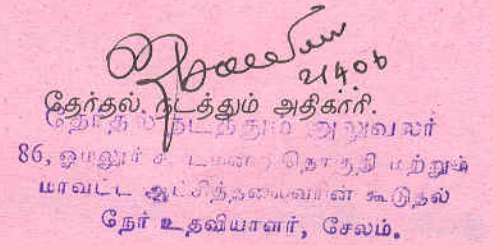 21406
தேர்தல் நடத்தும் அதிகாரி.
தேர்தல் நடத்தும் அலுவலர்
86, ஓமலூர் ச டமன்ற தொகுதி மற்றும்
மாவட்ட ஆட்சித்தலைவரின் கூடுதல்
நேர் உதவியாளர், சேலம்.